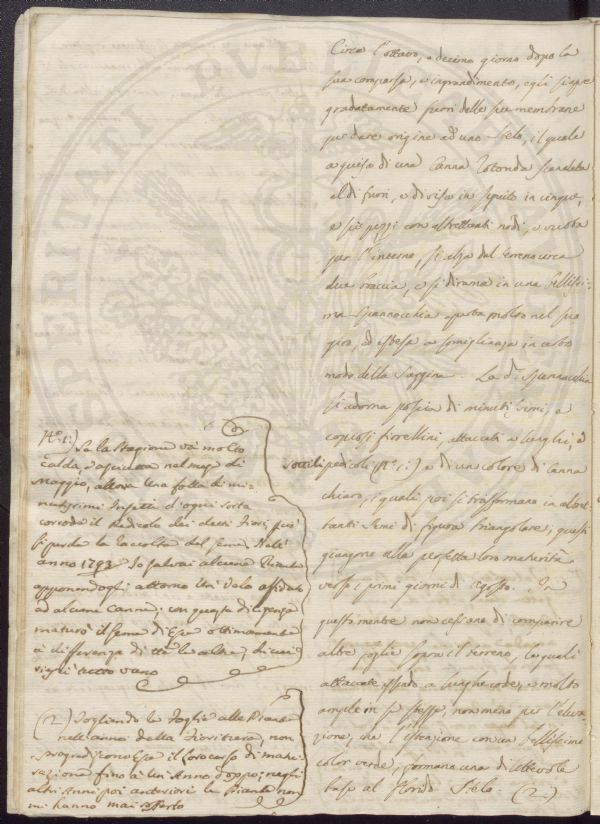 Circa l'ottavo, o decimo giorno dopo la
sua comparsa, e ingrandimento, egli si apre
gradatamente fuori delle sue membrane
per dare origine ad uno Stelo, il quale
a guisa di una Canna rotonda scanalata
al di fuori, e divisa in seguito in cinque,
o sei pezzi con altrettanti nodi, e vuota
per l'interno, si alza dal terreno circa
due braccia, e si dirama in una bellissi-
ma Spannocchia aperta molto nel suo
giro, ed estesa a somiglianza in certo
modo della Saggina. La d.ª Spannocchia
si adorna poscia di minutissimi, e
copiosi fiorellini, attaccati a lunghi, e
sottili pedicoli (Nº. 1:) e di un colore di Canna
chiaro, i quali poi si trasformano in altret-
tanti Semi di figura triangolare; questi
giungono alla perfetta loro maturità
verso i primi giorni di Agosto. In
questo mentre non cessano di comparire
altre foglie sopra il terreno, le quali
attaccate a lunghe code, e molto
ampie in se stesse, non meno per l'eleva-
zione, che l'estenzione con un bellissimo
color verde, formano una dilettevole
base al florido Stelo. (2.)
Nº. 1:) Se la Stagione và molto
calda, e asciutta nel mese di
Maggio, allora una folla di mi-
nutissimi Insetti d'ogni sorta
corrode il Pedicolo dei detti Fiori, e così
si perde la raccolta del seme. Nell'
anno 1793 Io salvai alcune Piante
apponendogli attorno un Velo affidato
ad alcune Canne; con questa diligenza
maturò il Seme di Esse ottimamente
a differenza di tt.e le altre, di cui
viddi tutto vano
(2.) Togliendo le Foglie alle Piante
nell'anno della Fioritura, non
progrediscono Esse il loro corso di matu-
razione fino a un'Anno doppo; negli
altri Anni poi anteriori le Piante non
mi hanno mai offerto